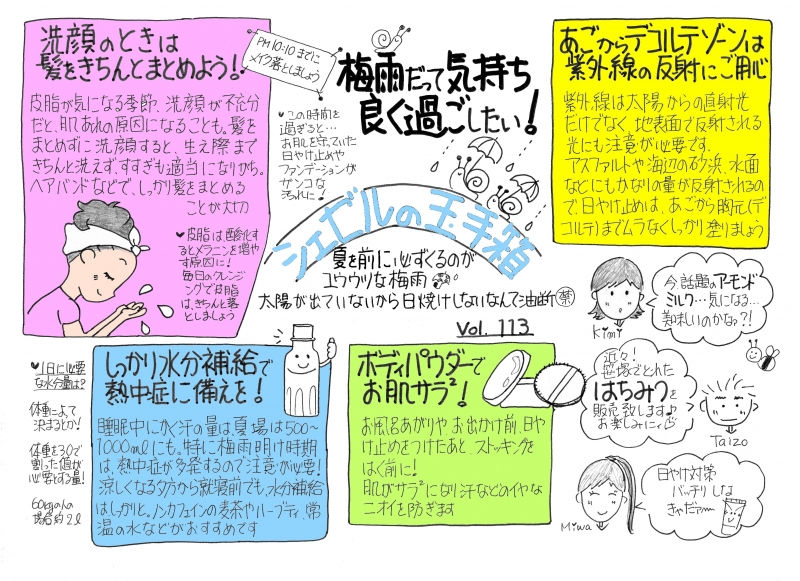 洗顔のときは
髪をきちんとまとめよう!
皮脂が気になる季節、洗顔が不充分
だと、肌あれの原因になることも。髪を
まとめずに洗顔すると、生え際まで
きちんと洗えず、すすぎも適当になりがち。
ヘアバンドなどで、しっかり髪をまとめる
ことが大切
♥皮脂は酸化す
るとメラニンを増や
す原因に!
毎日のクレンジ
ングで皮脂
は、きちんと落
としましょう
PM10:10までに
メイク落としましょう
♥この時間を
過ぎると…
お肌を守っていた
日やけ止めや
ファンデーションが
ザンコな
汚れに!
梅雨だって気持ち
良く過ごしたい!
シェゼルの玉手箱
夏を前に必ずくるのが
ユウウツな梅雨
太陽が出ていないから日焼けしないなんて油断禁
Vol. 113
あごからデコルテゾーンは
紫外線の反射にご用心
紫外線は太陽からの直射光
だけでなく、地表面で反射される
光にも注意が必要です。
アスファルトや海辺の砂浜、水面
などにもかなりの量が反射されるの
で、日やけ止めは、あごから胸元(デ
コルテ)までムラなくしっかり塗りましょう
今話題のアーモンド
ミルク…気になる…
美味しいのかなァ?!
Kimi
近々!
笹塚でとれた
はちみつを
販売致します♪
お楽しみにィ
Taizo
日やけ対策
バッチリしな
きゃだァ〜
Miwa
♥1日に必要
な水分量は?
体重によって
決まるとか!
体重を30で
割った値が
必要とする量!
60kgの人の
場合約2ℓ
しっかり水分補給で
熱中症に備えを!
睡眠中にかく汗の量は夏場は500〜
1000mlにも。特に梅雨明け時期
は、熱中症が多発するので注意が必要!
涼しくなる夕方から就寝前でも、水分補給
はしっかりと。ノンカフェインの麦茶やハーブティ、常
温の水などがおすすめです
ボディパウダーで
お肌サラ²!
お風呂あがりや、お出かけ前、日や
け止めをつけたあと、ストッキングを
はく前に!
肌がサラ²になり汗などのイヤな
ニオイを防ぎます